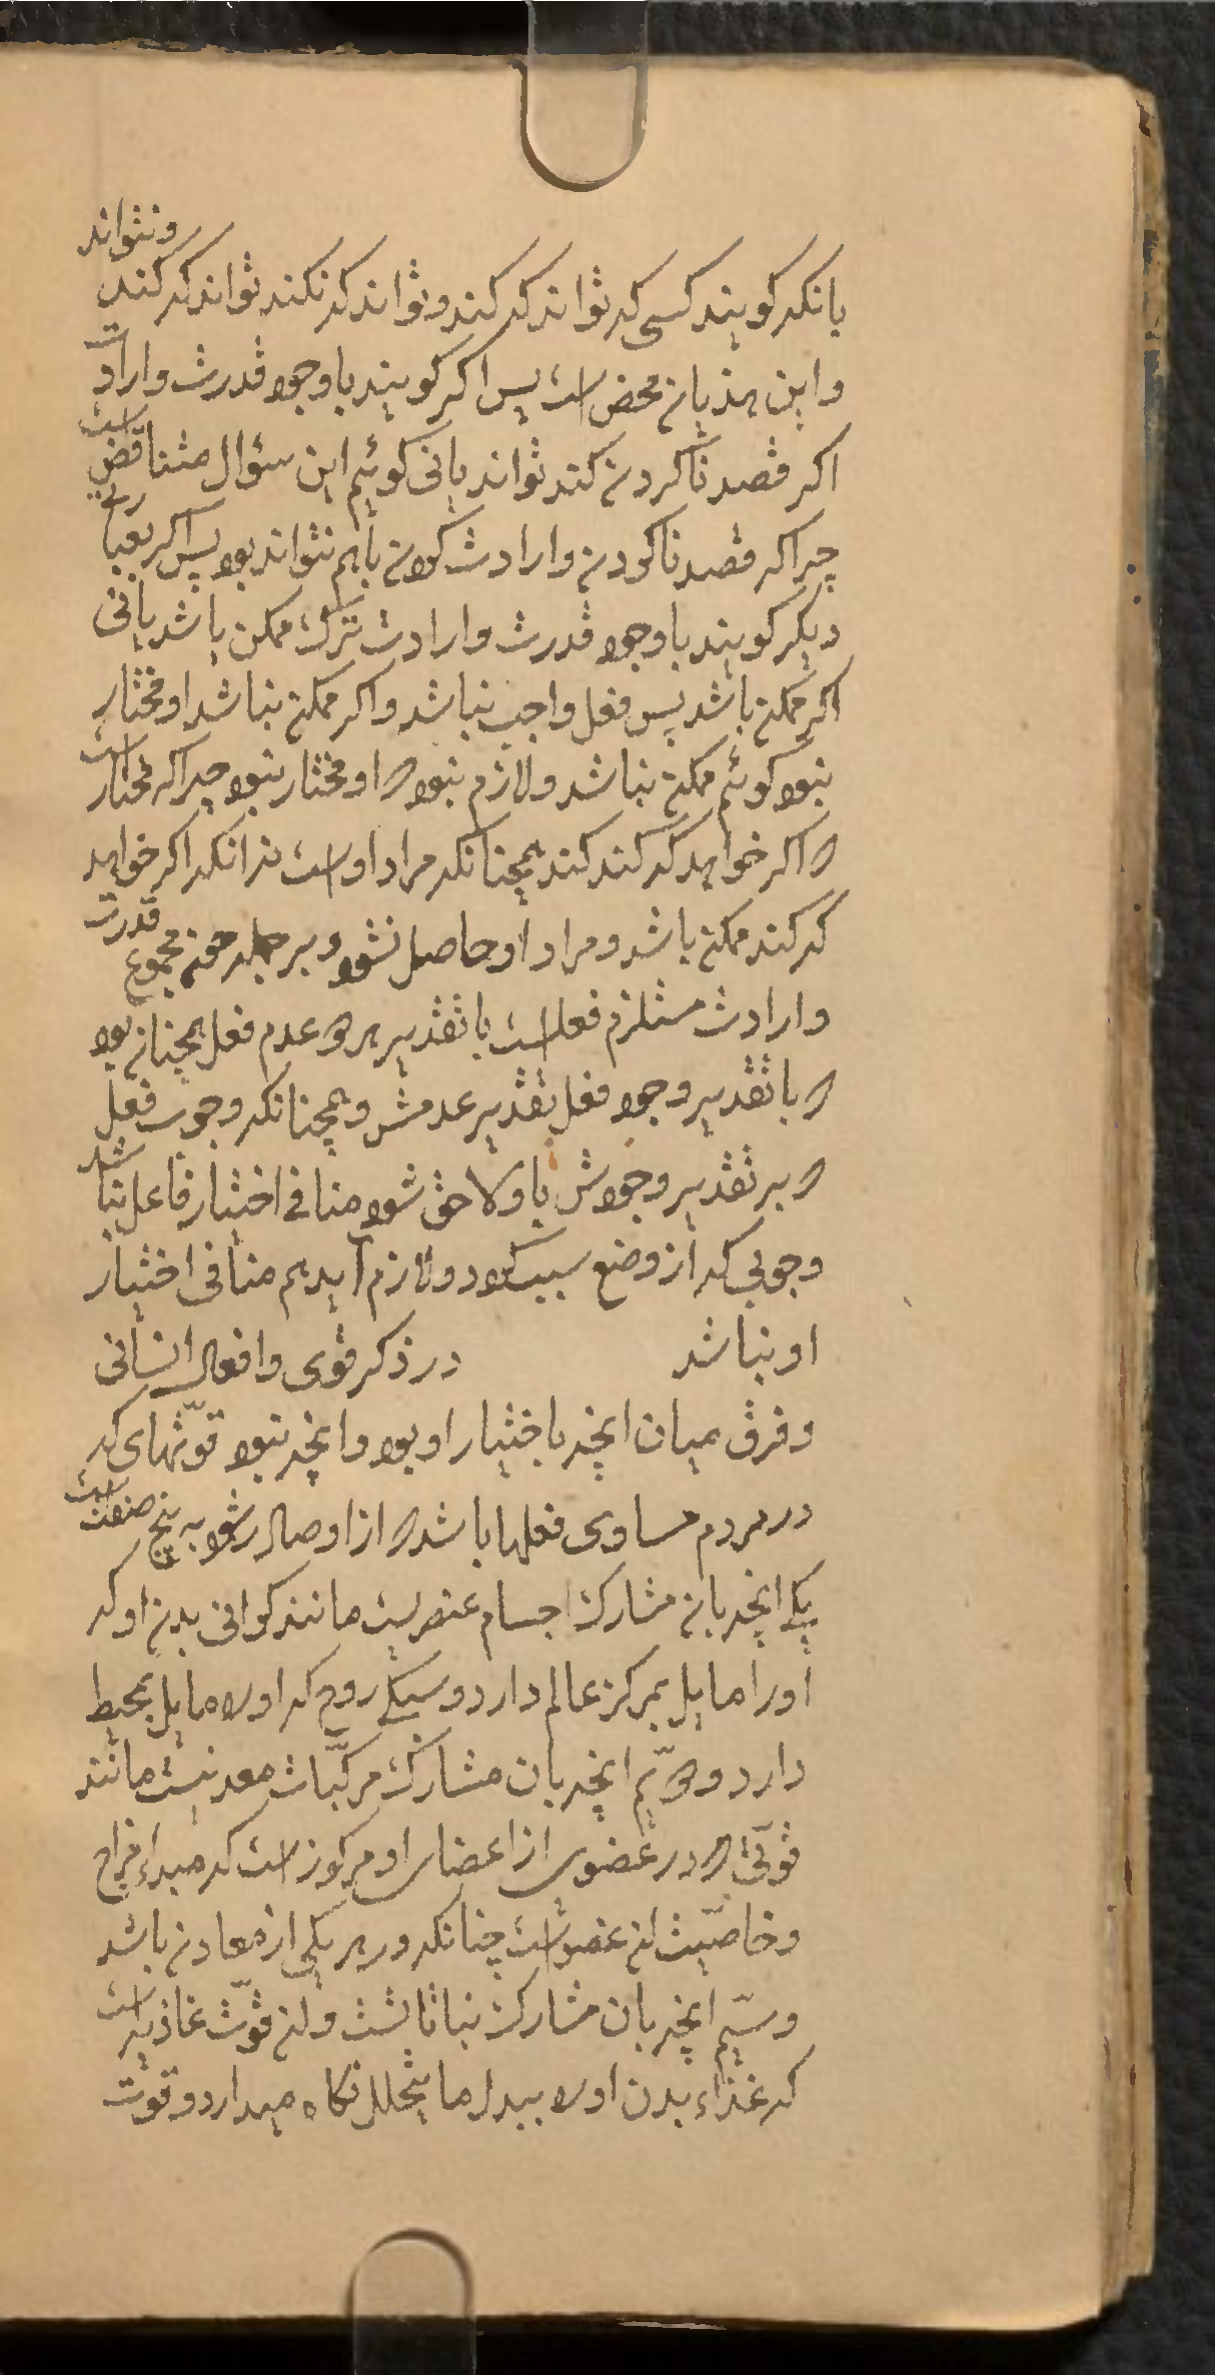 بانکه کویند کسی که تواند که کند وتواند که نکند تواند که کند ونتواند
واین هذیان محض است پس اکر کویند باوجود قدرت وارادت
اکر قصد ناکردن کند تواند یا نی کوئیم این سؤال متناقض است
چراکه قصد ناکردن وارادت کردن باهم نتواند بود پس اکر بعبارتی
دیکر کویند باوجود قدرت وارادت ترک ممکن باشد یا نی
اکر ممکن باشد پس فعل واجب نباشد واکر ممکن نباشد او مختار
نبود کوئیم ممکن نباشد ولازم نبود که او مختار نبود چراکه مختار است
که اکر خواهد که کند کند همچنانکه مراد اوست نه آنکه اکر خواهد
که کند ممکن باشد ومراد او حاصل نشود وبر جمله چون مجموع قدرت
وارادت مستلزم فعلست با تقدیر هردو عدم فعل همچنان بود
که با تقدیر وجود فعل تقدیر عدمش وهمچنانکه وجوب فعل
که بر تقدیر وجودش باو لاحق شود منافی اختیار فاعل نباشد
وجوبی که از وضع سبب کرد ولازم آید هم منافی اختیار
او نباشد در ذکر قوی وافعال انسانی
وفرق میان انچه باختیار او بود وانچه نبود قوّتهای که
در مردم مساوی فعلها باشد که ازاو صادر شود به پنج صنفت است
یکی انچه بان مشارک اجسام عنصریست مانند کرانی بدن او که
اورا مایل بمرکز عالم دارد وسبکی روح که اورا مایل بمحیط
دارد ودوّیم انچه بان مشارک مرکّبات معدنیست مانند
قوّتی که در عضوی از اعضای او مرکوز است که مبداء مزاج
وخاصّیت ان عضوست چنانکه در هر یکی از معادن باشد
وسیّم انچه بان مشارک نباتاتست وان قوّت غاذیه است
که غذاء بدن اورا ببدل ما یتحلل نکاه میدارد وقوّت